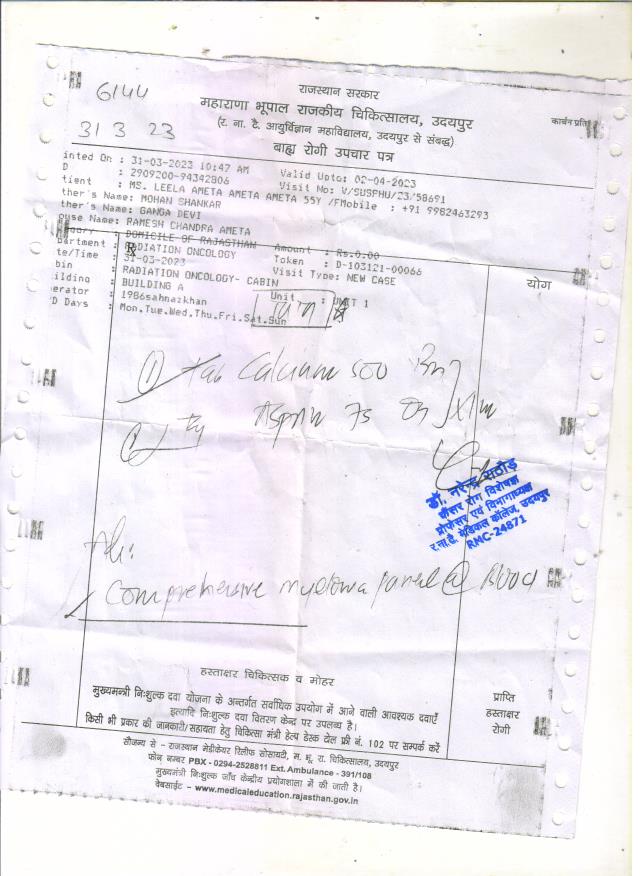 6144
राजस्थान सरकार
महाराणा भूपाल राजकीय चिकित्सालय, उदयपुर
कार्बन प्रति
(र. ना. टै. आयुर्विज्ञान महाविद्यालय, उदयपुर से संबद्ध)
31 3 23
बाह्य रोगी उपचार पत्र
inted On : 31-03-2023 10:47 AM Valid Upto: 02-04-2023
D : 2909200-94342806 Visit No: V/SUSPHU/23/58691
tient : MS. LEELA AMETA AMETA AMETA 55Y /FMobile : +91 9982463293
ther's Name: MOHAN SHANKAR
ther's Name: GANGA DEVI
ouse Name: RAMESH CHANDRA AMETA
DOMICILE OF RAJASTHAN Amount : Rs.0.00
partment : RADIATION ONCOLOGY Token : D-103121-00066
te/Time : 31-03-2023 Visit Type: NEW CASE
bin : RADIATION ONCOLOGY- CABIN
योग
ilding : BUILDING A Unit : UNIT 1
erator : 1986sahnazkhan
D Days : Mon,Tue,Wed,Thu,Fri,Sat,Sun
① Tab Calcium 500
Aspirin 75 x 1m
डॉ. नरेन्द्र राठौड़
कैंसर रोग विशेषज्ञ
प्रोफेसर एवं विभागाध्यक्ष
र.ना.टै. मेडिकल कॉलेज, उदयपुर
RMC-24871
Adv:
Comprehensive myeloma panel @ Blood
हस्ताक्षर चिकित्सक व मोहर
मुख्यमन्त्री निःशुल्क दवा योजना के अन्तर्गत सर्वाधिक उपयोग में आने वाली आवश्यक दवाएँ
इत्यादि निःशुल्क दवा वितरण केन्द्र पर उपलब्ध है।
किसी भी प्रकार की जानकारी/सहायता हेतु चिकित्सा मंत्री हेल्प डेस्क टोल फ्री नं. 102 पर सम्पर्क करें
प्राप्ति
हस्ताक्षर
रोगी
सौजन्य से - राजस्थान मेडीकेयर रिलीफ सोसायटी, म. भू. रा. चिकित्सालय, उदयपुर
फोन नम्बर PBX - 0294-2528811 Ext. Ambulance - 391/108
मुख्यमंत्री निःशुल्क जाँच केन्द्रीय प्रयोगशाला में की जाती है।
वेबसाईट - www.medicaleducation.rajasthan.gov.in